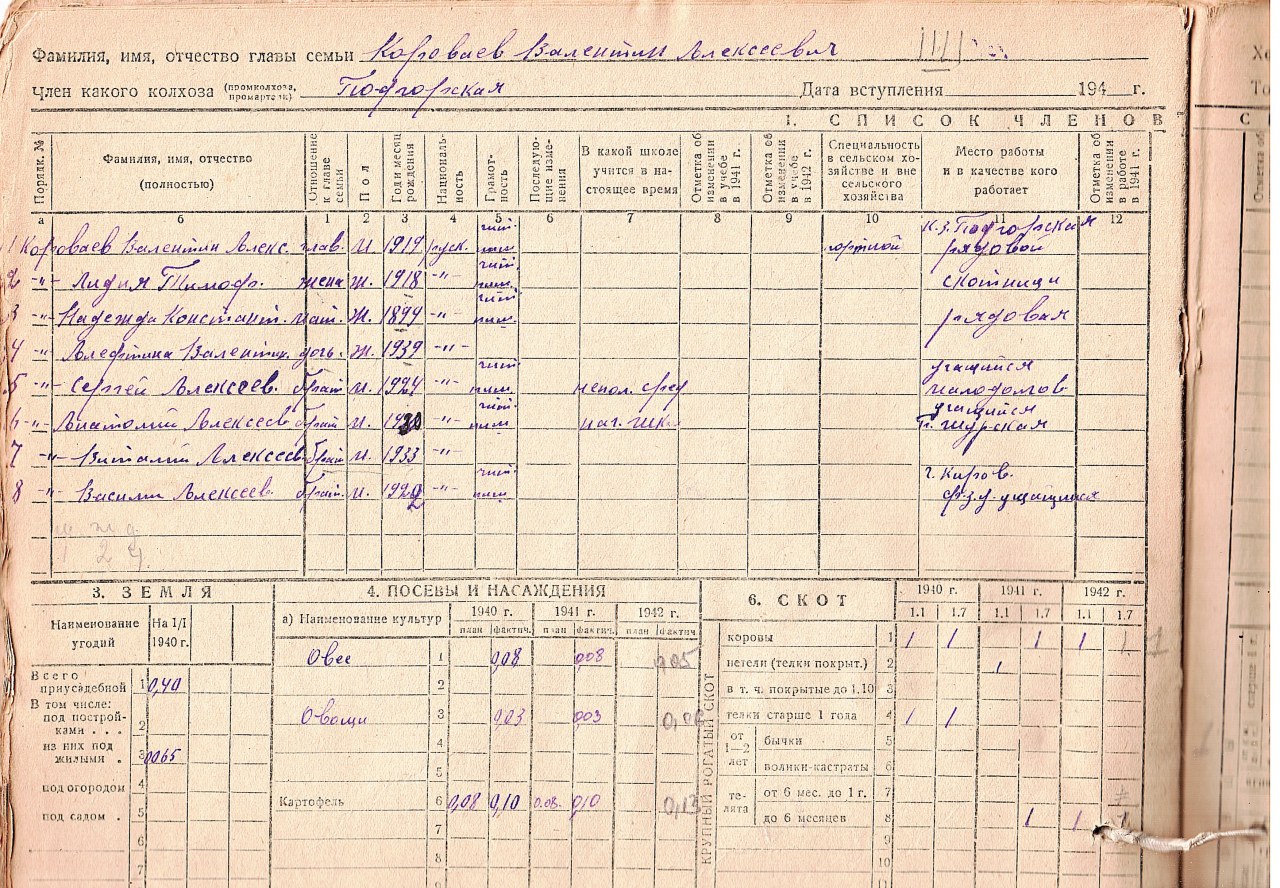 Фамилия, имя, отчество главы семьи Короваев Валентин Алексеевич
Член какого колхоза (промколхоза, промартели) Подгорская Дата вступления 194 г.
1. СПИСОК ЧЛЕНОВ
Порядк. № Фамилия, имя, отчество (полностью) Отношение к главе семьи Пол Год и месяц рождения Националь-ность Грамот-ность Последую-щие изме-нения В какой школе учится в на-стоящее время Отметка об изменении в учебе в 1941 г. Отметка об изменении в учебе в 1942 г. Специальность в сельском хо-зяйстве и вне сельского хозяйства Место работы и в качестве кого работает Отметка об изменении в работе в 1941 г.
а б 1 2 3 4 5 6 7 8 9 10 11 12
1 Короваев Валентин Алекс. глав. м. 1919 руск. чит. пис. портной к.з. Подгорская рядовой
2 -"- Лидия Тимоф. жена ж. 1918 -"- чит. пис. скотница
3 -"- Надежда Констант. мат. ж. 1899 -"- чит. пис. рядовая
4 -"- Алефтина Валентин. дочь. ж. 1939 -"-
5 -"- Сергей Алексеев. брат м. 1924 -"- чит. пис. непол. сред учащийся
6 -"- Анатолий Алексеев брат м. 1930 -"- чит. пис. нач. шк. учащийся
7 -"- Виталий Алексеев брат м. 1933 -"-
8 -"- Василий Алексеев. брат м. 1922 -"- чит. пис. г. Киров. ф.з.у. учащийся
3. ЗЕМЛЯ
Наименование угодий На 1/I 1940 г.
Всего приусадебной 1 0,40
В том числе:
под построй-ками . . . 2
из них под жилыми . 3 0,065
под огородом 4
под садом . 5
6
7
4. ПОСЕВЫ И НАСАЖДЕНИЯ
а) Наименование культур 1940 г. 1941 г. 1942 г.
план фактич. план фактич. план фактич.
Овес 1 0,08 0,08 0,05
2
Овощи 3 0,03 0,03
4
5
Картофель 6 0,08 0,10 0.08. 0,10 0,13
7
8
6. СКОТ 1940 г. 1941 г. 1942 г.
1.1 1.7 1.1 1.7 1.1 1.7
КРУПНЫЙ РОГАТЫЙ СКОТ
коровы 1 1 1 1 1 1
нетели (телки покрыт.) 2 1
в т. ч. покрытые до 1.10 3
телки старше 1 года 4 1 1
от 1—2 лет бычки 5
волики-кастраты 6
те-лята от 6 мес. до 1 г. 7
до 6 месяцев 8 1 1 1
9
10